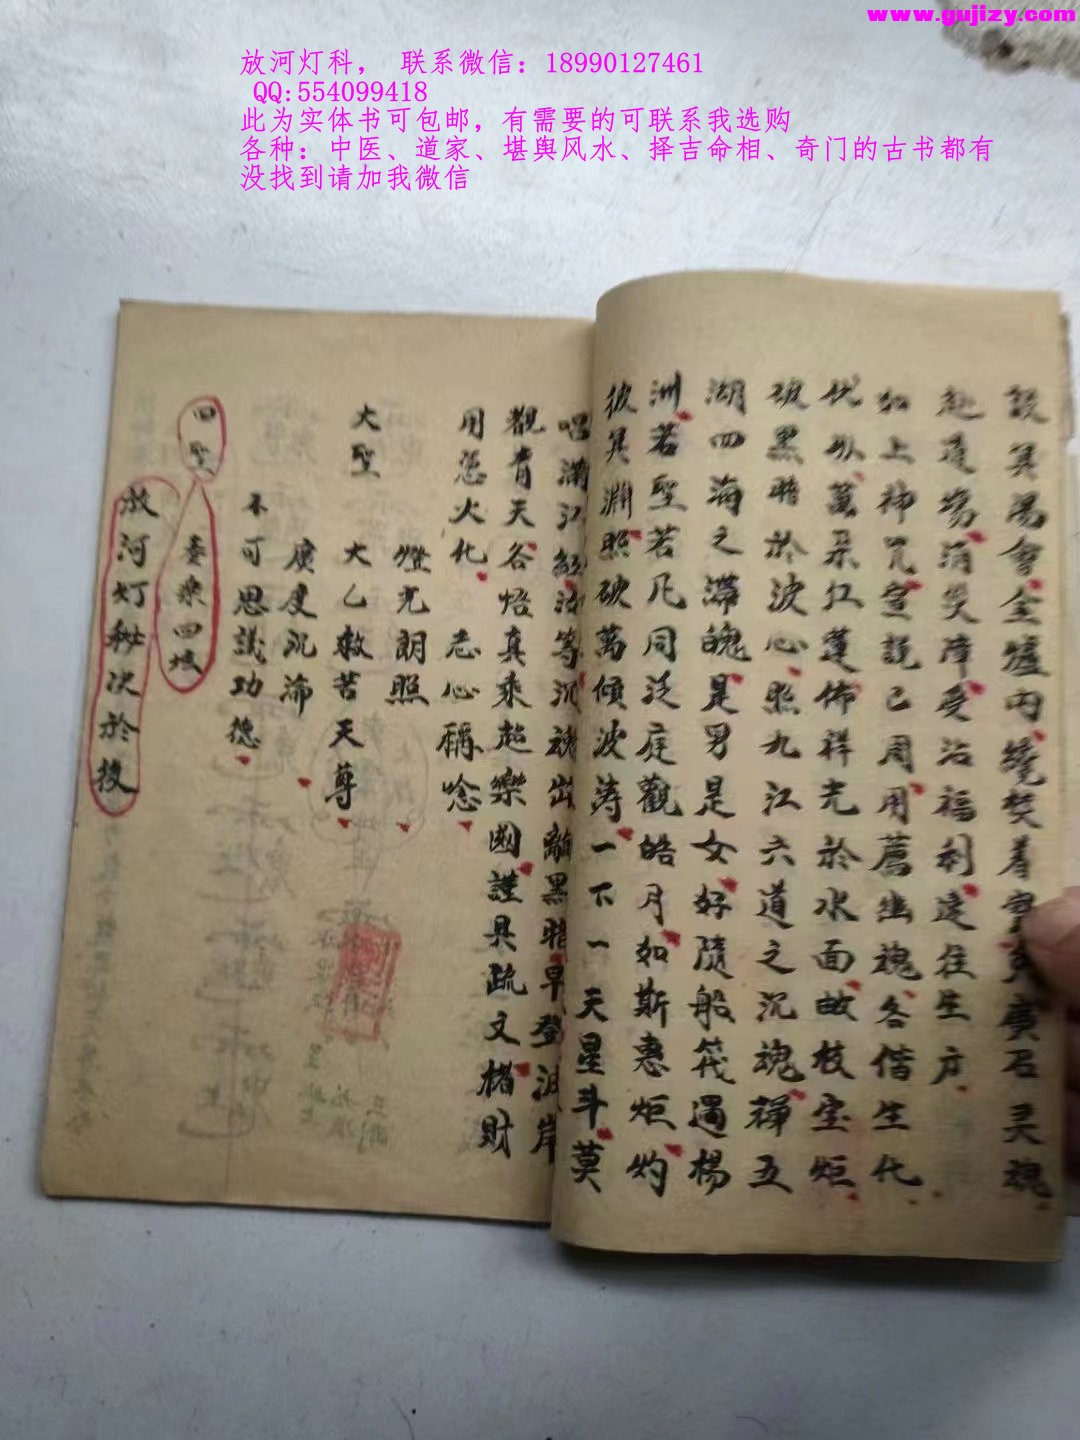 www.gujizy.com
放河灯科， 联系微信：18990127461
QQ:554099418
此为实体书可包邮，有需要的可联系我选购
各种：中医、道家、堪舆风水、择吉命相、奇门的古书都有
没找到请加我微信
設冥陽會全爐内燒焚着黑石灵魂
赴道場消災障受沾福利逹往生方
如上神咒宣説已周用薦幽魂各偕生化
代以萬朵红蓮佈祥光於水面故枝宝炬
破黑暗於波心照九江六道之沉魂禅五
湖四海之滞魄是男是女好隨船筏過楊
洲若聖若凡同泛庭觀皓月如斯惠炬灼
彼冥淵照破萬傾波涛一下一天星斗莫
唱滿江紅汝等沉魂出離黑暗早登波岸
觀青天各悟真乘超樂國謹具疏文楮財
用憑火化 志心稱念
燈光朗照
大聖 大乙救苦天尊
廣度沉淪
不可思議功德
四聖 奏樂四坡
放河灯秘决於後